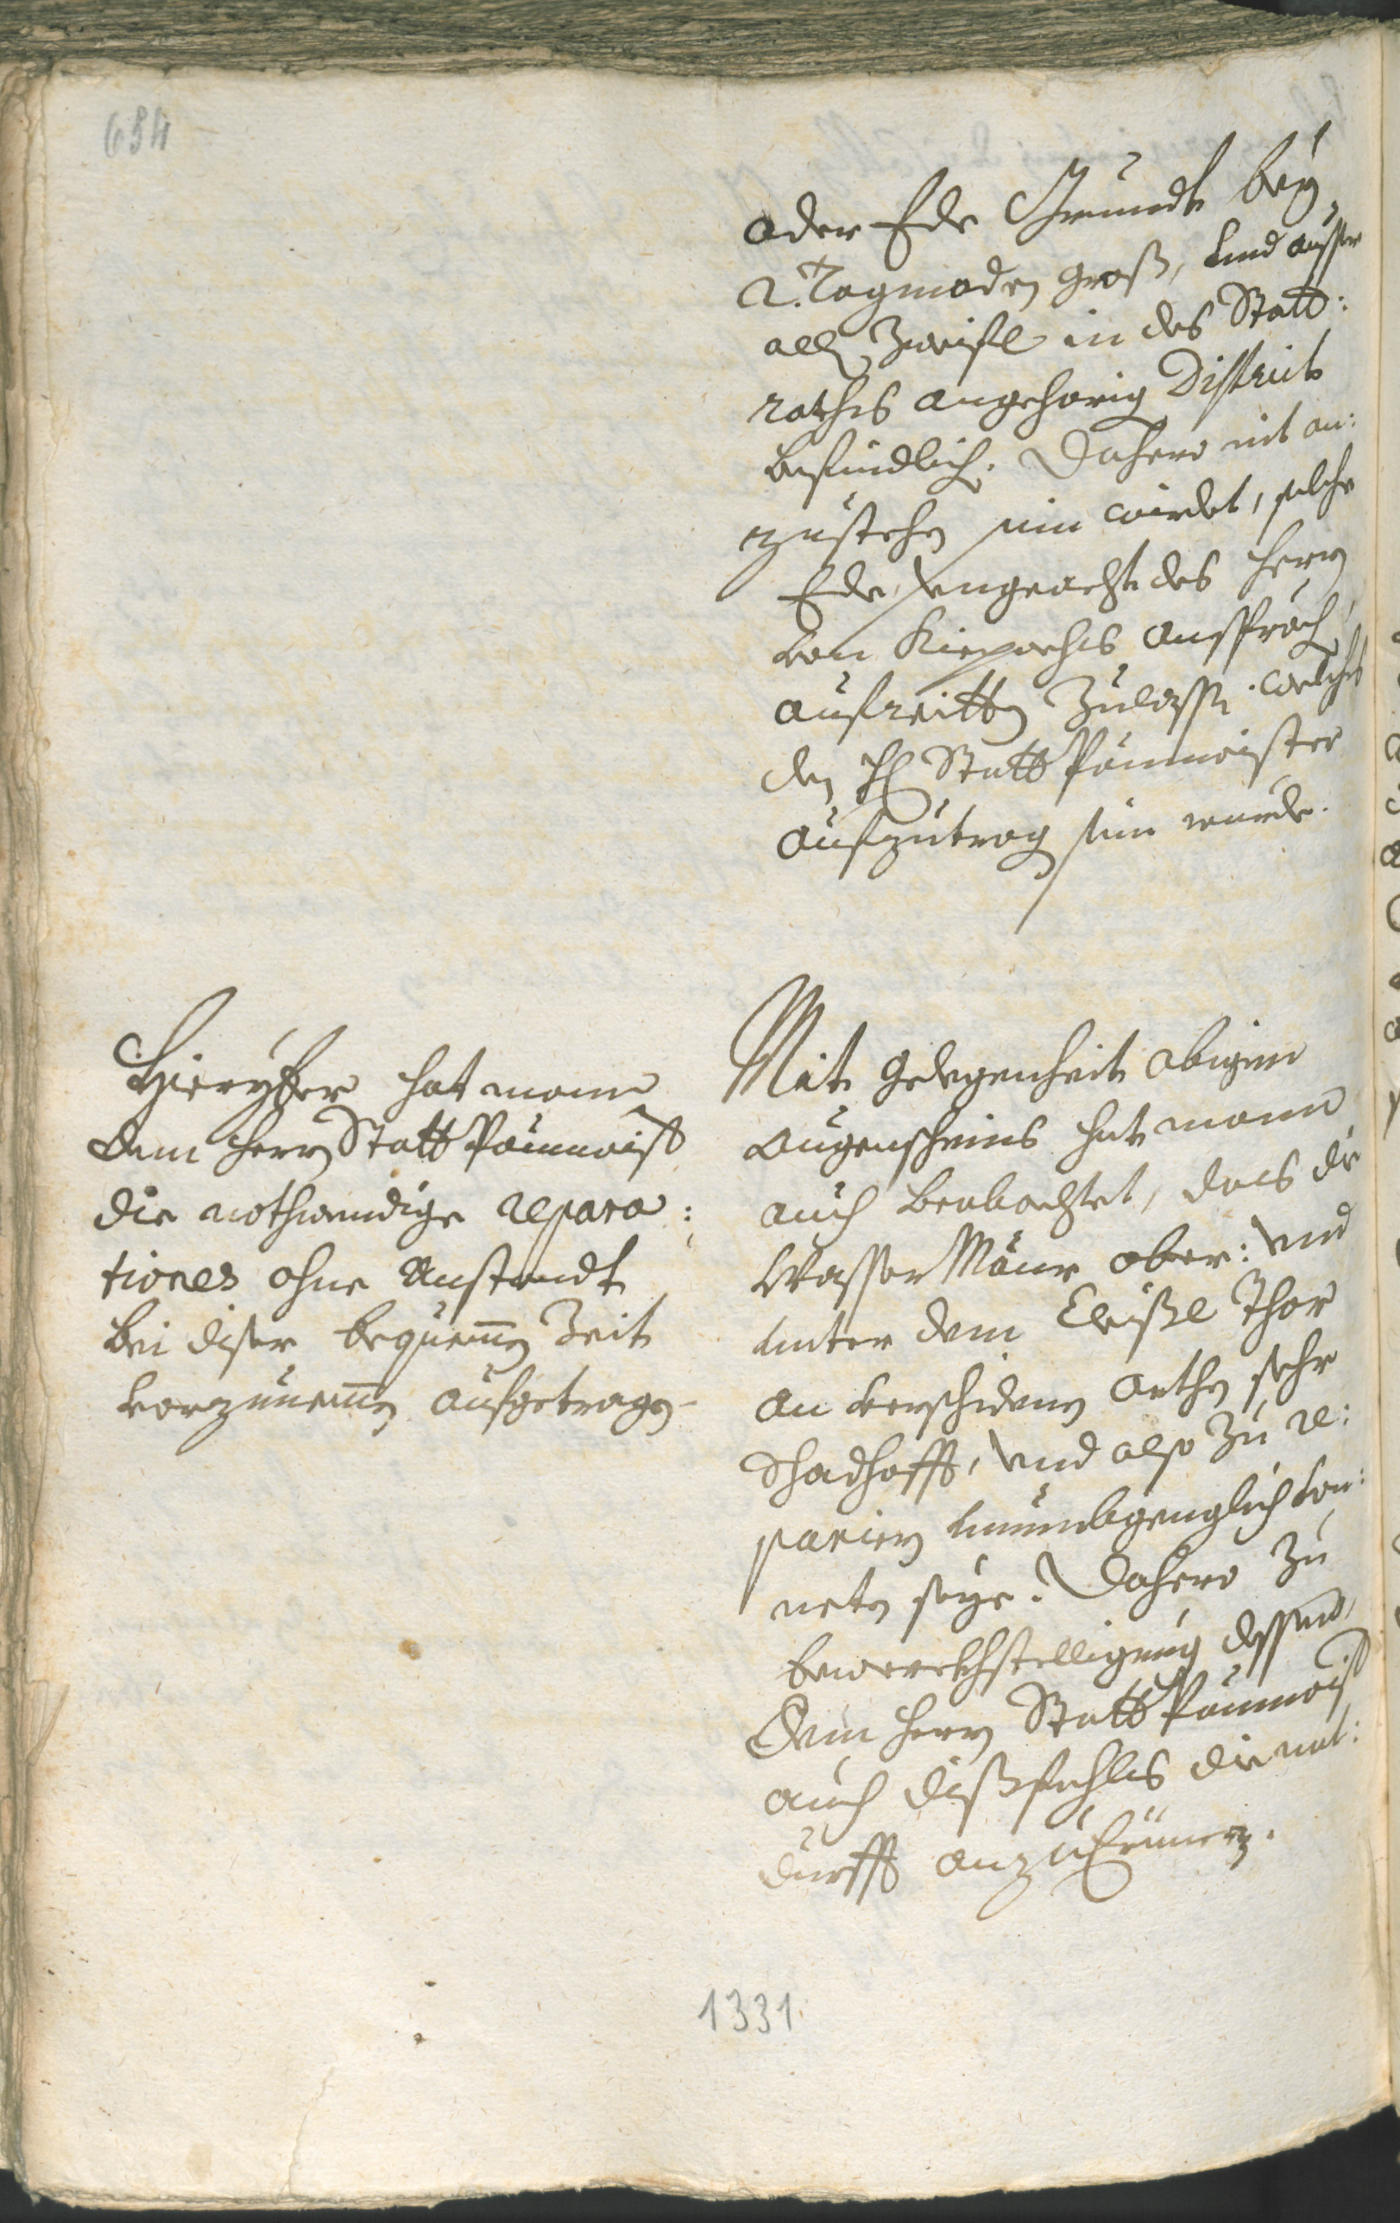 684
oder Ede Grundt beÿ
2. Tagmaden groß, und ausser
alles Zweifl in des Statt:
rathes angehörig District
befindlich. Dahero nit an:
zustehen sein wirdet, solche
Ede, ungeacht des Herrn
von Kiepachs Ansprach,
ausreitten zulassen. welches
den H: Statt Paumaister
aufzutragen sein wurde.
Hierÿber hat mann
dem Herrn Statt Paumaister
die nothwendige repara:
tiones ohne Anstandt
bei diser bequemen Zeit
vorzunemen aufgetragen
Mit gelegenheit obigen
Augenscheins hat mann
auch beobachtet, das die
Wasser Maur ober: und
unter dem Thor
an verschidenen orthen sehr
schadhafft, und also zu re:
parieren unumbgenglich von:
neten seÿe. Dahero zu
bewerckhstelligung dessen,
dem Herrn Statt Paumaister
auch dißfahls die not:
durfft anzuErinnern.
1331